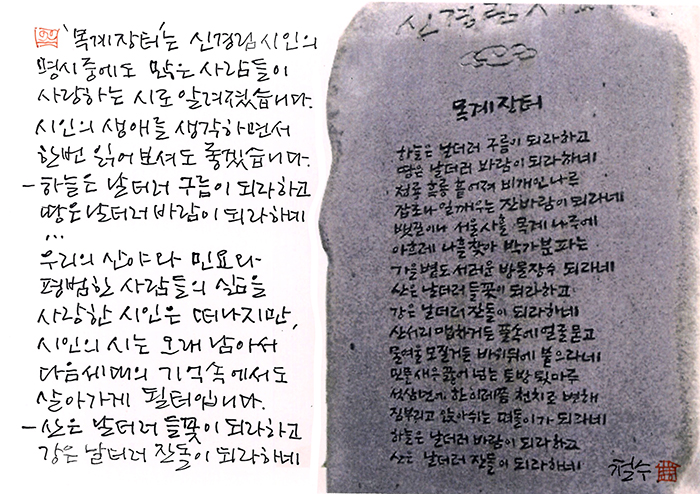 '목계장터'는 신경림 시인의
명시 중에도 많은 사람들이
사랑하는 시로 알려져 있습니다.
시인의 생애를 생각하면서
한번 읽어보셔도 좋겠습니다.
- 하늘은 날더러 구름이 되라하고
땅은 날더러 바람이 되라하네
...
우리의 산야와 민요와
평범한 사람들의 삶을
사랑한 시인은 떠나지만,
시인의 시는 오래 남아서
다음세대의 기억속에서도
살아가게 될터입니다.
- 산은 날더러 들꽃이 되라하고
강은 날더러 잔돌이 되라하네
신경림
목계장터
하늘은 날더러 구름이 되라하고
땅은 날더러 바람이 되라하네
청룡 흑룡 흩어져 비개인 나루
잡초나 일깨우는 잔바람이 되라네
뱃길이라 서울사흘 목계 나루에
아흐레 나흘 찾아 박가분 파는
가을볕도 서러운 방물장수 되라네
산은 날더러 들꽃이 되라하고
강은 날더러 잔돌이 되라하네
산서리 맵차거든 풀속에 얼굴 묻고
물여울 모질거든 바위뒤에 붙으라네
민물새우 끓어 넘는 토방 툇마루
석삼년에 한 이레쯤 천치로 변해
짐부리고 앉아쉬는 떠돌이가 되라네
하늘은 날더러 바람이 되라하고
산은 날더러 잔돌이 되라하네
철수